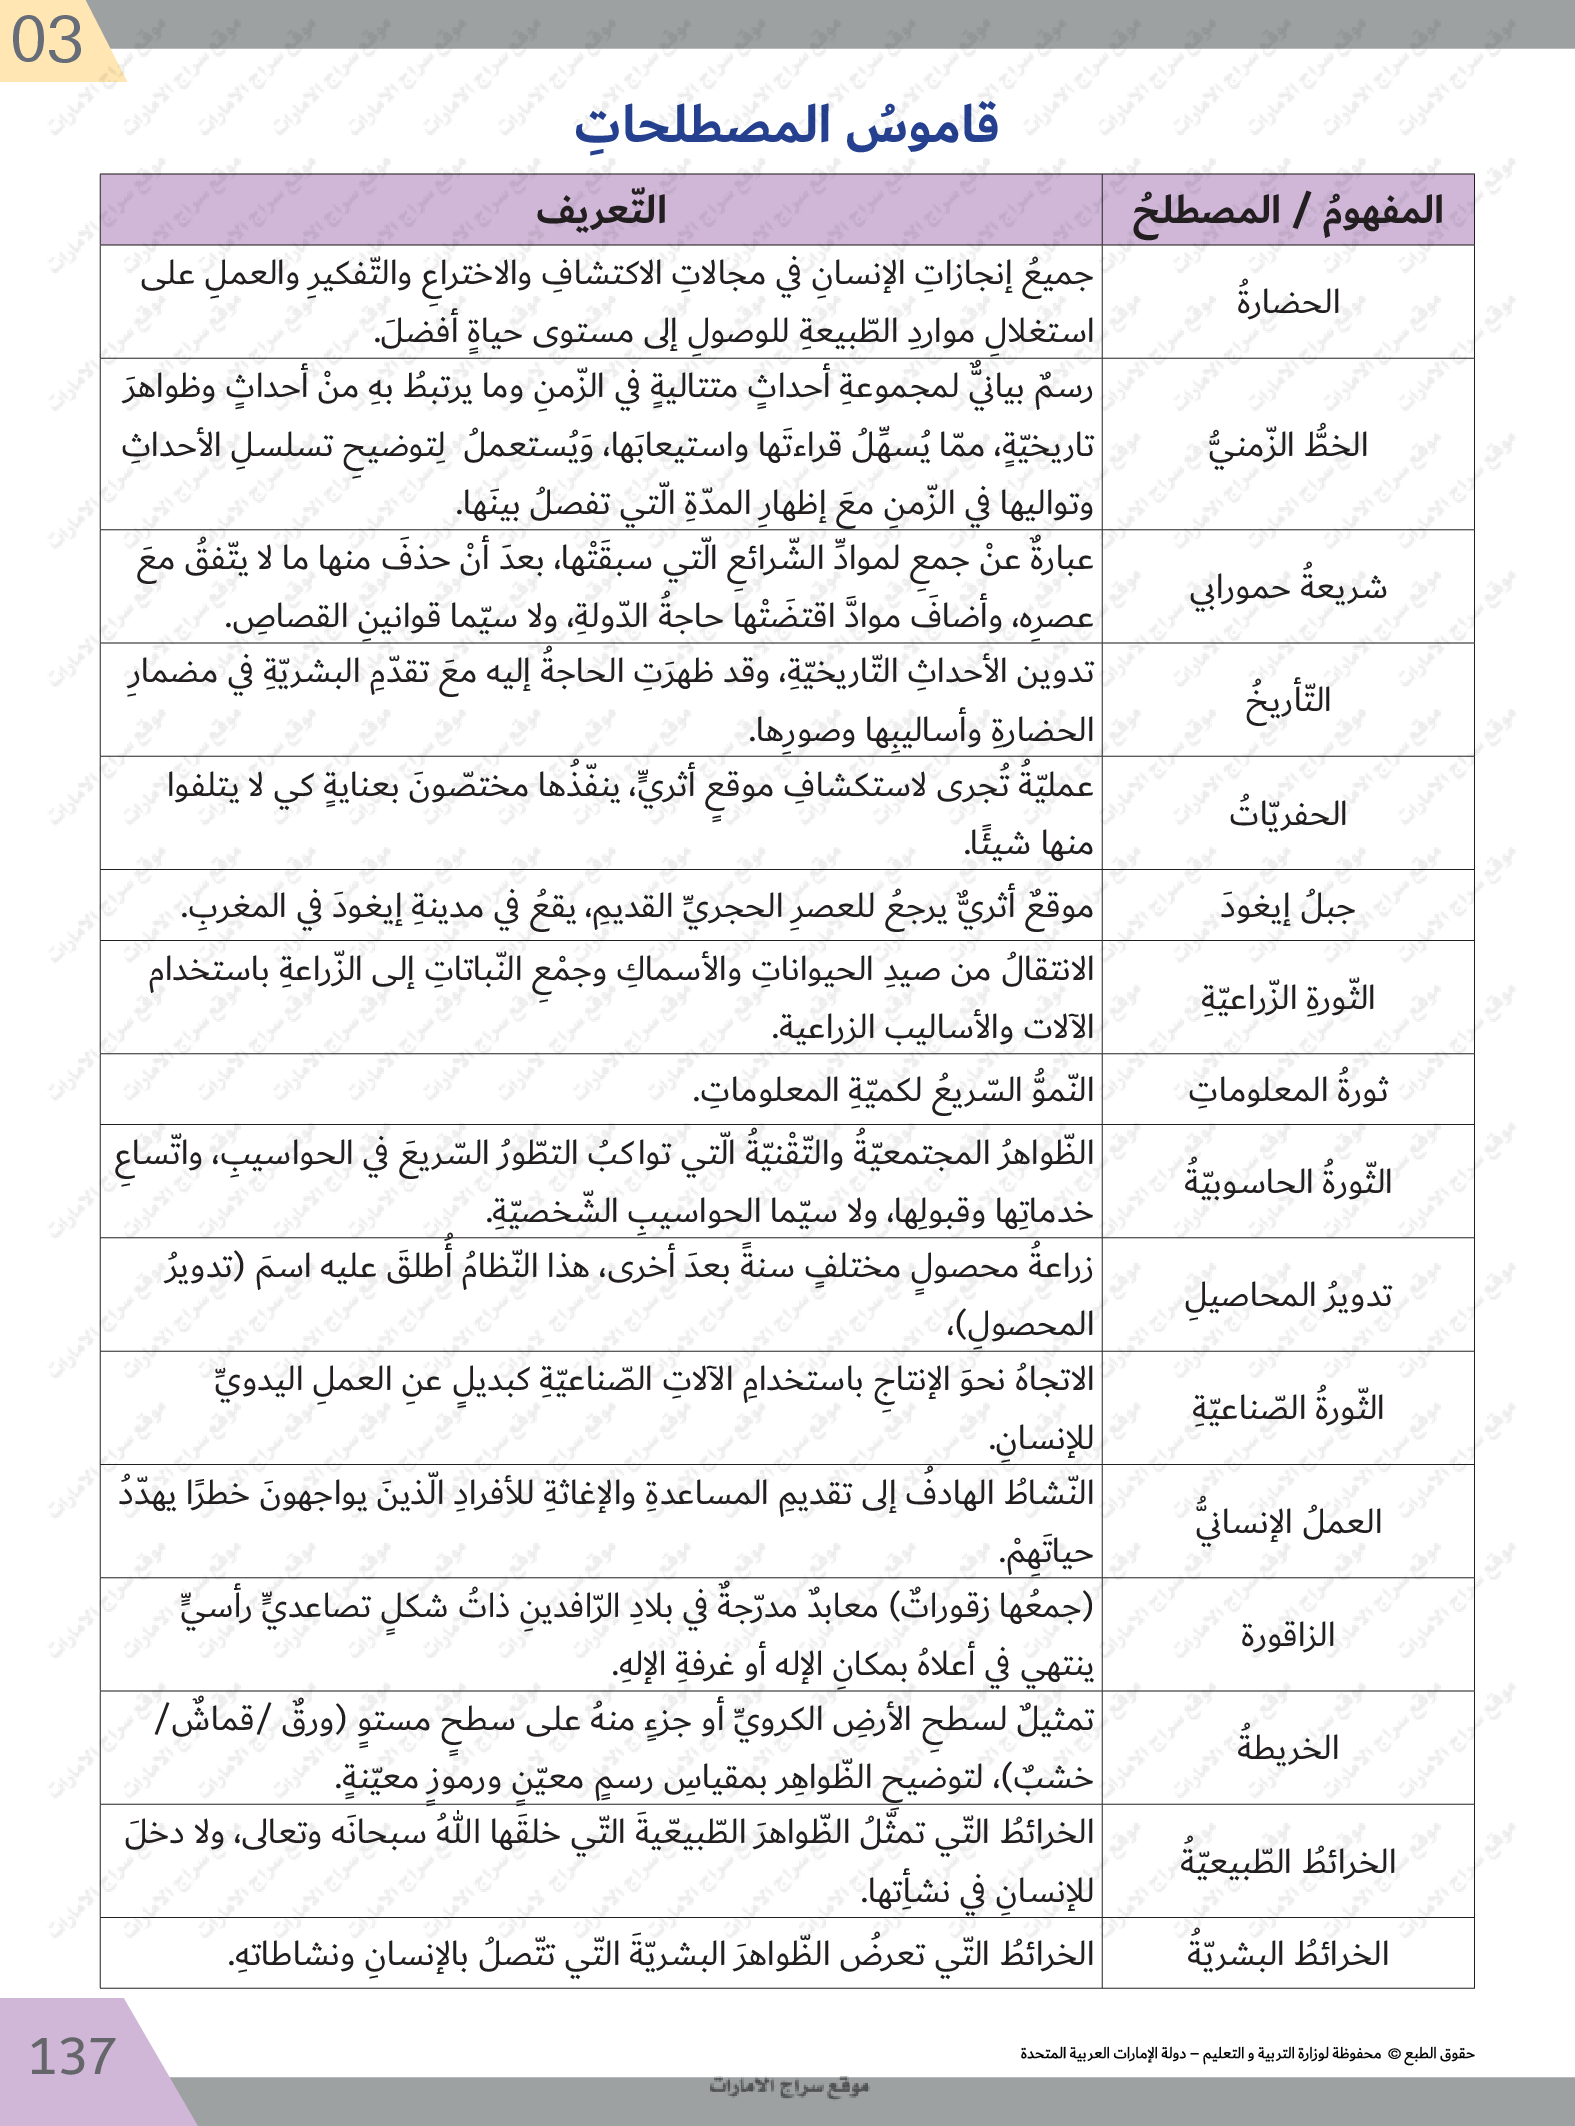 03
قاموسُ المصطلحاتِ
المفهومُ / المصطلحُ
التّعريف
الحضارةُ
جميعُ إنجازاتِ الإنسانِ في مجالاتِ الاكتشافِ والاختراعِ والتّفكيرِ والعملِ على
استغلالِ مواردِ الطّبيعةِ للوصولِ إلى مستوى حياةٍ أفضلَ.
الخطُّ الزّمنيُّ
رسمٌ بيانيٌّ لمجموعةِ أحداثٍ متتاليةٍ في الزّمنِ وما يرتبطُ بهِ منْ أحداثٍ وظواهرَ
تاريخيّةٍ، ممّا يُسهِّلُ قراءتَها واستيعابَها، وَيُستعملُ لِتوضيحِ تسلسلِ الأحداثِ
وتواليها في الزّمنِ معَ إظهارِ المدّةِ الّتي تفصلُ بينَها.
شريعةُ حمورابي
عبارةٌ عنْ جمعِ لموادِّ الشّرائعِ الّتي سبقَتْها، بعدَ أنْ حذفَ منها ما لا يتّفقُ معَ
عصرِه، وأضافَ موادَّ اقتضَتْها حاجةُ الدّولةِ، ولا سيّما قوانينِ القصاصِ.
التّأريخُ
تدوين الأحداثِ التّاريخيّةِ، وقد ظهرَتِ الحاجةُ إليه معَ تقدّمِ البشريّةِ في مضمارِ
الحضارةِ وأساليبِها وصورِها.
الحفريّاتُ
عمليّةُ تُجرى لاستكشافِ موقعٍ أثريٍّ، ينفّذُها مختصّونَ بعنايةٍ كي لا يتلفوا
منها شيئًا.
جبلُ إيغودَ
موقعٌ أثريٌّ يرجعُ للعصرِ الحجريِّ القديمِ، يقعُ في مدينةِ إيغودَ في المغربِ.
الثّورةِ الزّراعيّةِ
الانتقالُ من صيدِ الحيواناتِ والأسماكِ وجمْعِ النّباتاتِ إلى الزّراعةِ باستخدام
الآلات والأساليب الزراعية.
ثورةُ المعلوماتِ
النّموُّ السّريعُ لكميّةِ المعلوماتِ.
الثّورةُ الحاسوبيّةُ
الظّواهرُ المجتمعيّةُ والتّقْنيّةُ الّتي تواكبُ التطّورُ السّريعَ في الحواسيبِ، واتّساعِ
خدماتِها وقبولِها، ولا سيّما الحواسيبِ الشّخصيّةِ.
تدويرُ المحاصيلِ
زراعةُ محصولٍ مختلفٍ سنةً بعدَ أخرى، هذا النّظامُ أُطلقَ عليه اسمَ (تدويرُ
المحصولِ)،
الثّورةُ الصّناعيّةِ
الاتجاهُ نحوَ الإنتاجِ باستخدامِ الآلاتِ الصّناعيّةِ كبديلٍ عنِ العملِ اليدويِّ
للإنسانِ.
العملُ الإنسانيُّ
النّشاطُ الهادفُ إلى تقديمِ المساعدةِ والإغاثةِ للأفرادِ الّذينَ يواجهونَ خطرًا يهدّدُ
حياتَهِمْ.
الزاقورة
(جمعُها زقوراتٌ) معابدٌ مدرّجةٌ في بلادِ الرّافدينِ ذاتُ شكلٍ تصاعديٍّ رأسيٍّ
ينتهي في أعلاهُ بمكانِ الإله أو غرفةِ الإلهِ.
الخريطةُ
تمثيلٌ لسطحِ الأرضِ الكرويِّ أو جزءٍ منهُ على سطحٍ مستوٍ (ورقٌ /قماشٌ/
خشبٌ)، لتوضيحِ الظّواهِر بمقياسِ رسمٍ معيّنٍ ورموزٍ معيّنةٍ.
الخرائطُ الطّبيعيّةُ
الخرائطُ التّي تمثّلُ الظّواهرَ الطّبيعّيةَ التّي خلقَها اللّهُ سبحانَه وتعالى، ولا دخلَ
للإنسانِ في نشأتِها.
الخرائطُ البشريّةُ
الخرائطُ التّي تعرضُ الظّواهرَ البشريّةَ التّي تتّصلُ بالإنسانِ ونشاطاتهِ.
حقوق الطبع © محفوظة لوزارة التربية و التعليم – دولة الإمارات العربية المتحدة
137
موقع سراج الامارات